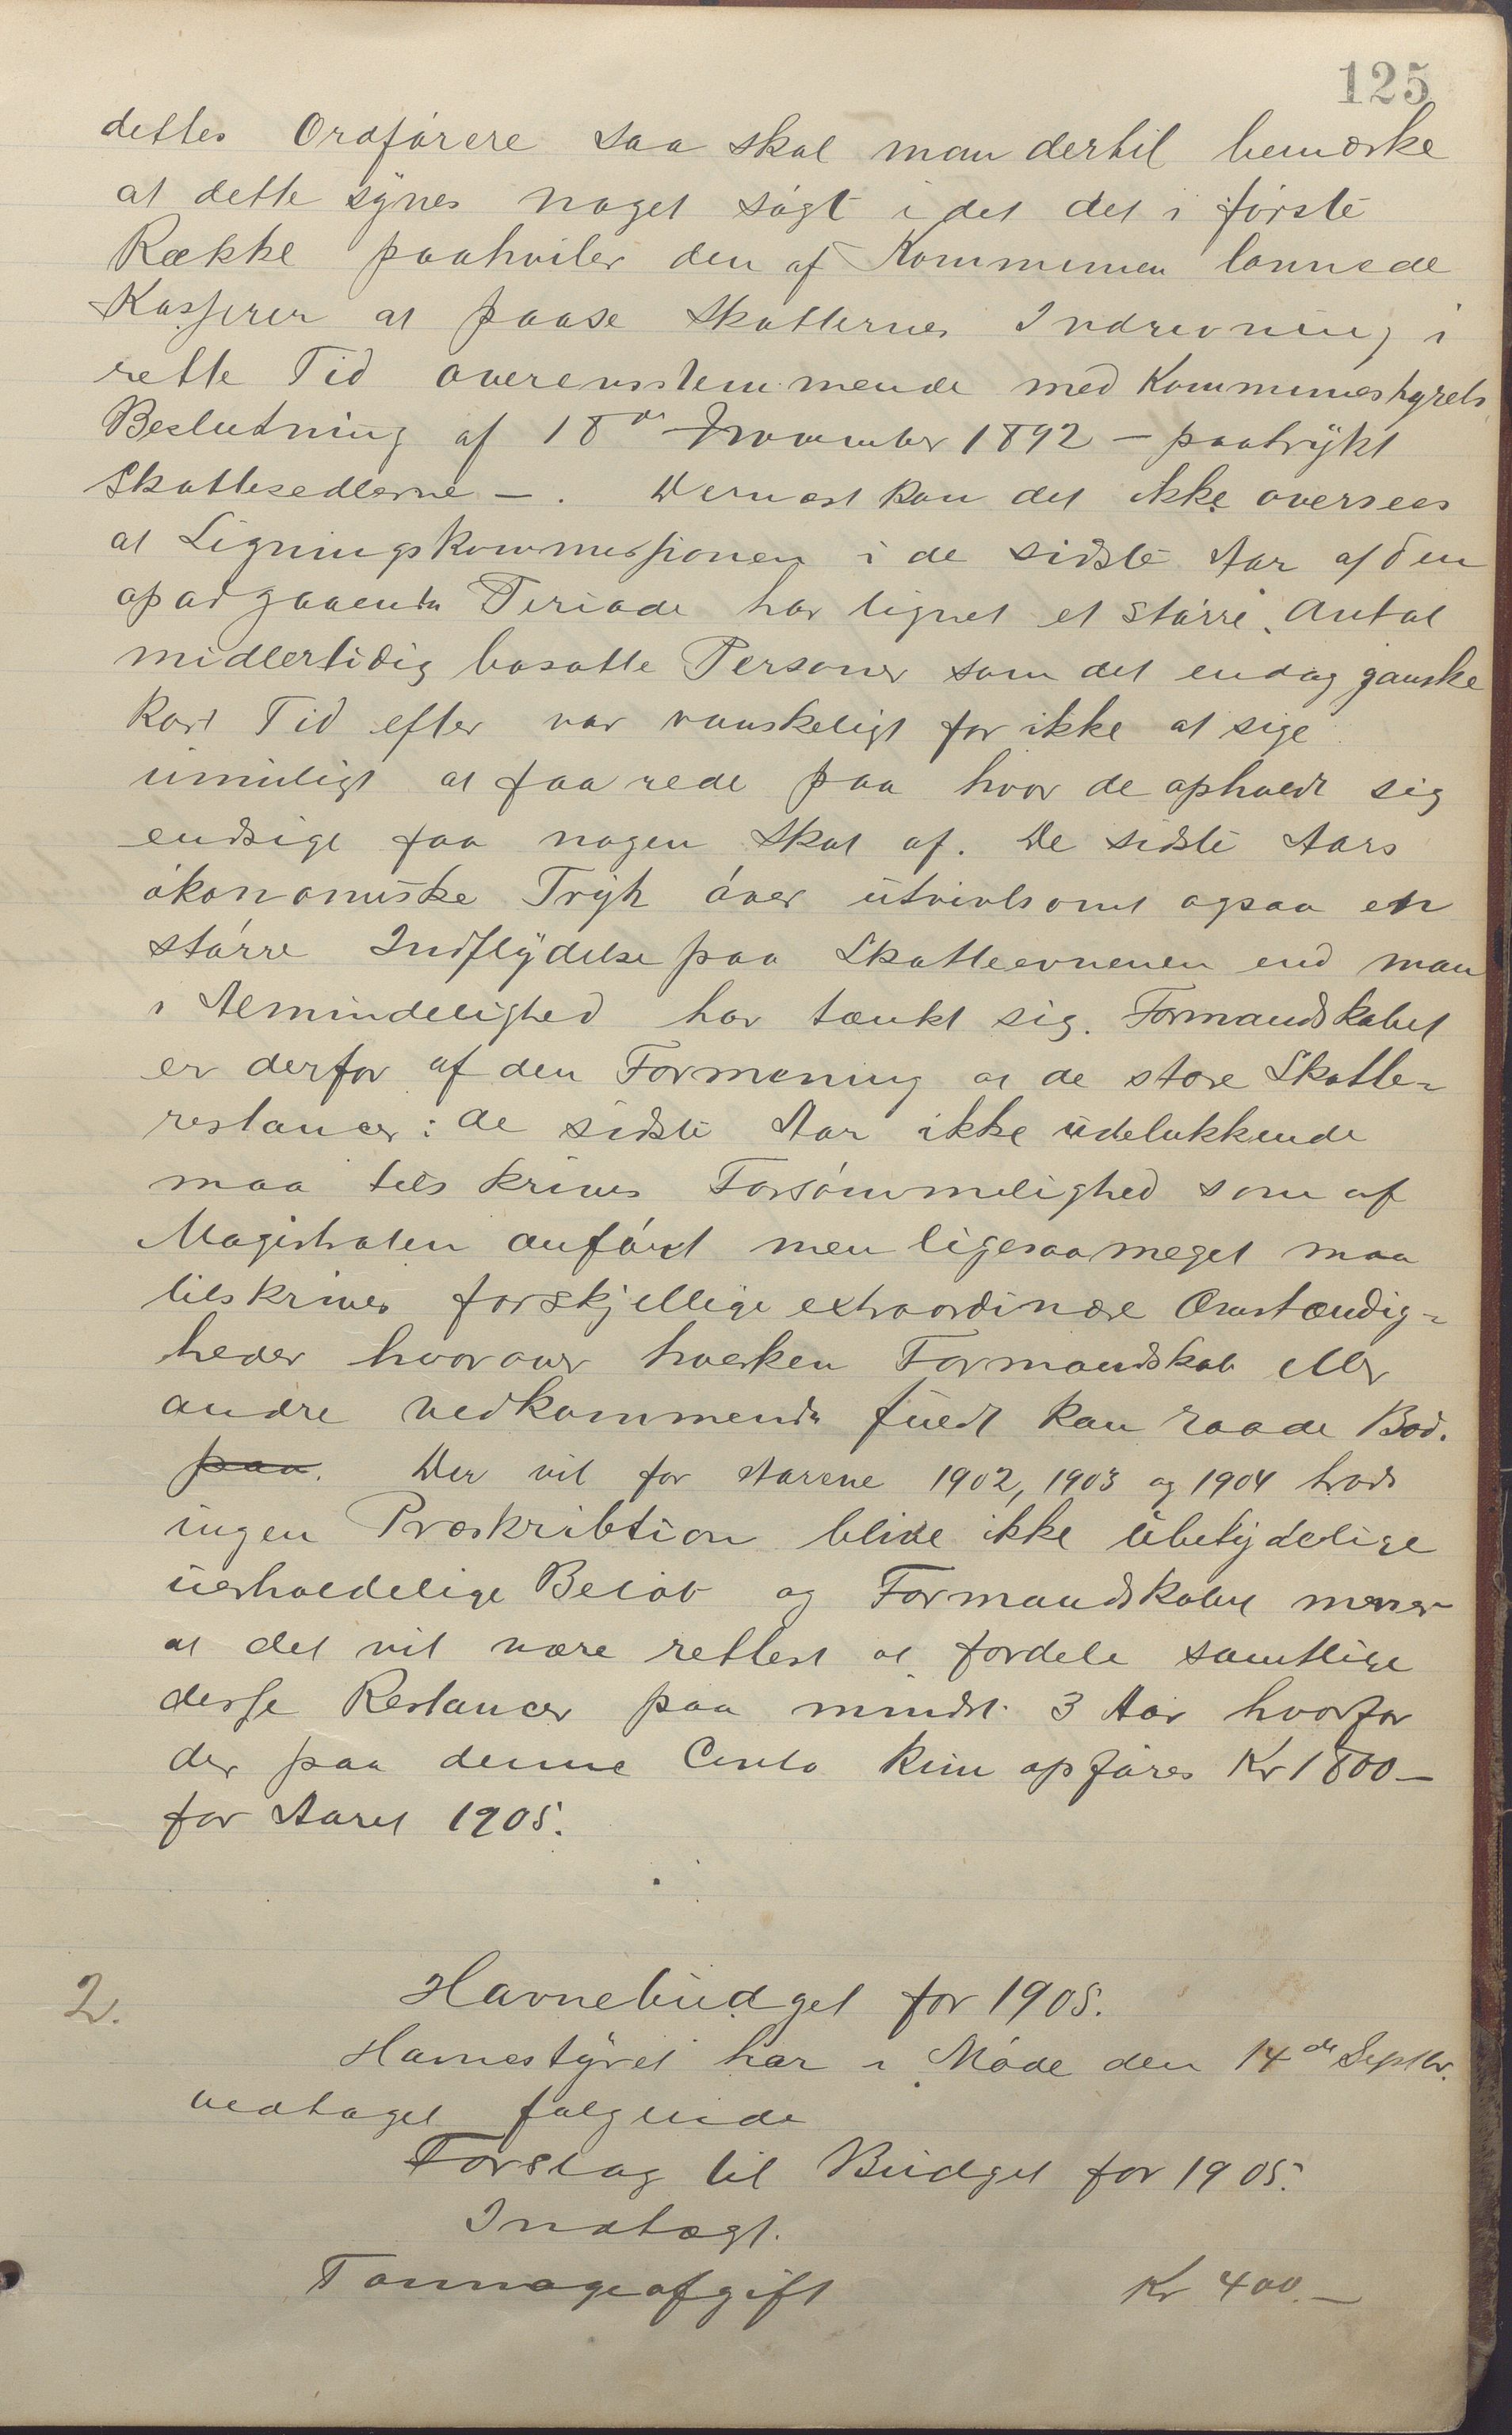 125
dettes Ordførere saa skal man dertil bemærke
at dette synes noget søgt idet det i første
Række paahviler den af Kommunen lønnede
Kasserer at paase Skatternes Inddrivning i
rette Tid overensstemmende med Kommunestyrets
Beslutning af 18de November 1892 — paatrykt
Skattesedlerne —. Dernæst kan det ikke oversees
at Ligningskommissionen i de sidste Aar af den
opadgaaende Periode har lignet et større Antal
midlertidig bosatte Personer som det endog ganske
kort Tid efter var vanskeligt for ikke at sige
umuligt at faa rede paa hvor de opholdt sig
endsige faa nogen Skat af. De sidste Aars
økonomiske Tryk øver utvivlsomt ogsaa en
større Indflydelse paa Skatteevnenen end man
i Almindelighed har tænkt sig. Formandskabet
er derfor af den Formening at de store Skatte-
restancer i de sidste Aar ikke udelukkende
maa tilskrives Forsømmelighed som af
Magistraten anført men ligesaameget maa
tilskrives forskjellige extraordinære Omstændig-
heder hvorover hverken Formandskab eller
andre vedkommende fuldt kan raade Bod.
paa. Der vil for Aarene 1902, 1903 og 1904 trods
ingen Præskribtion blive ikke ubetydelige
uerholdelige Beløb og Formandskabet mener
at det vil være rettest at fordele samtlige
disse Restancer paa mindst 3 Aar hvorfor
der paa denne Conto kun opføres Kr 1800—
for Aaret 1905.
2. Havnebudget for 1905.
Havnestyret har i Møde den 14de Septbr.
vedtaget følgende
Forslag til Budget for 1905.
Indtægt.
Tonnageafgift Kr 400.—